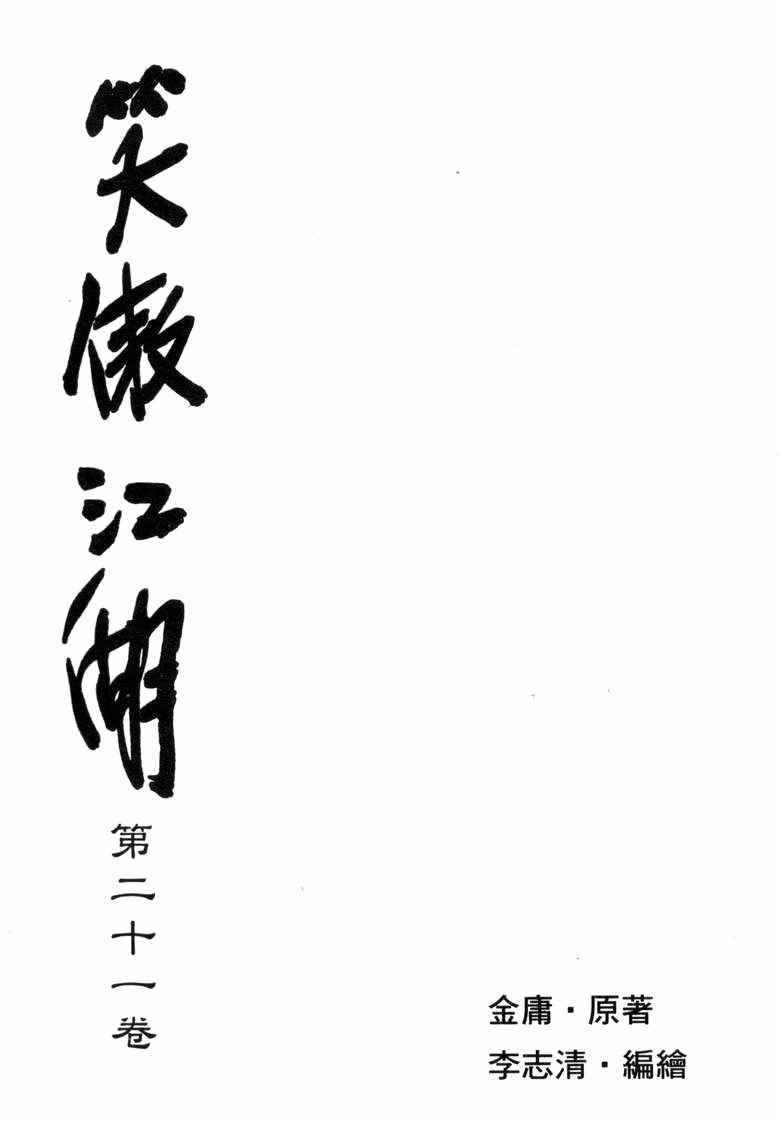 笑傲江湖
第二十一卷
金庸・原著
李志清・編繪